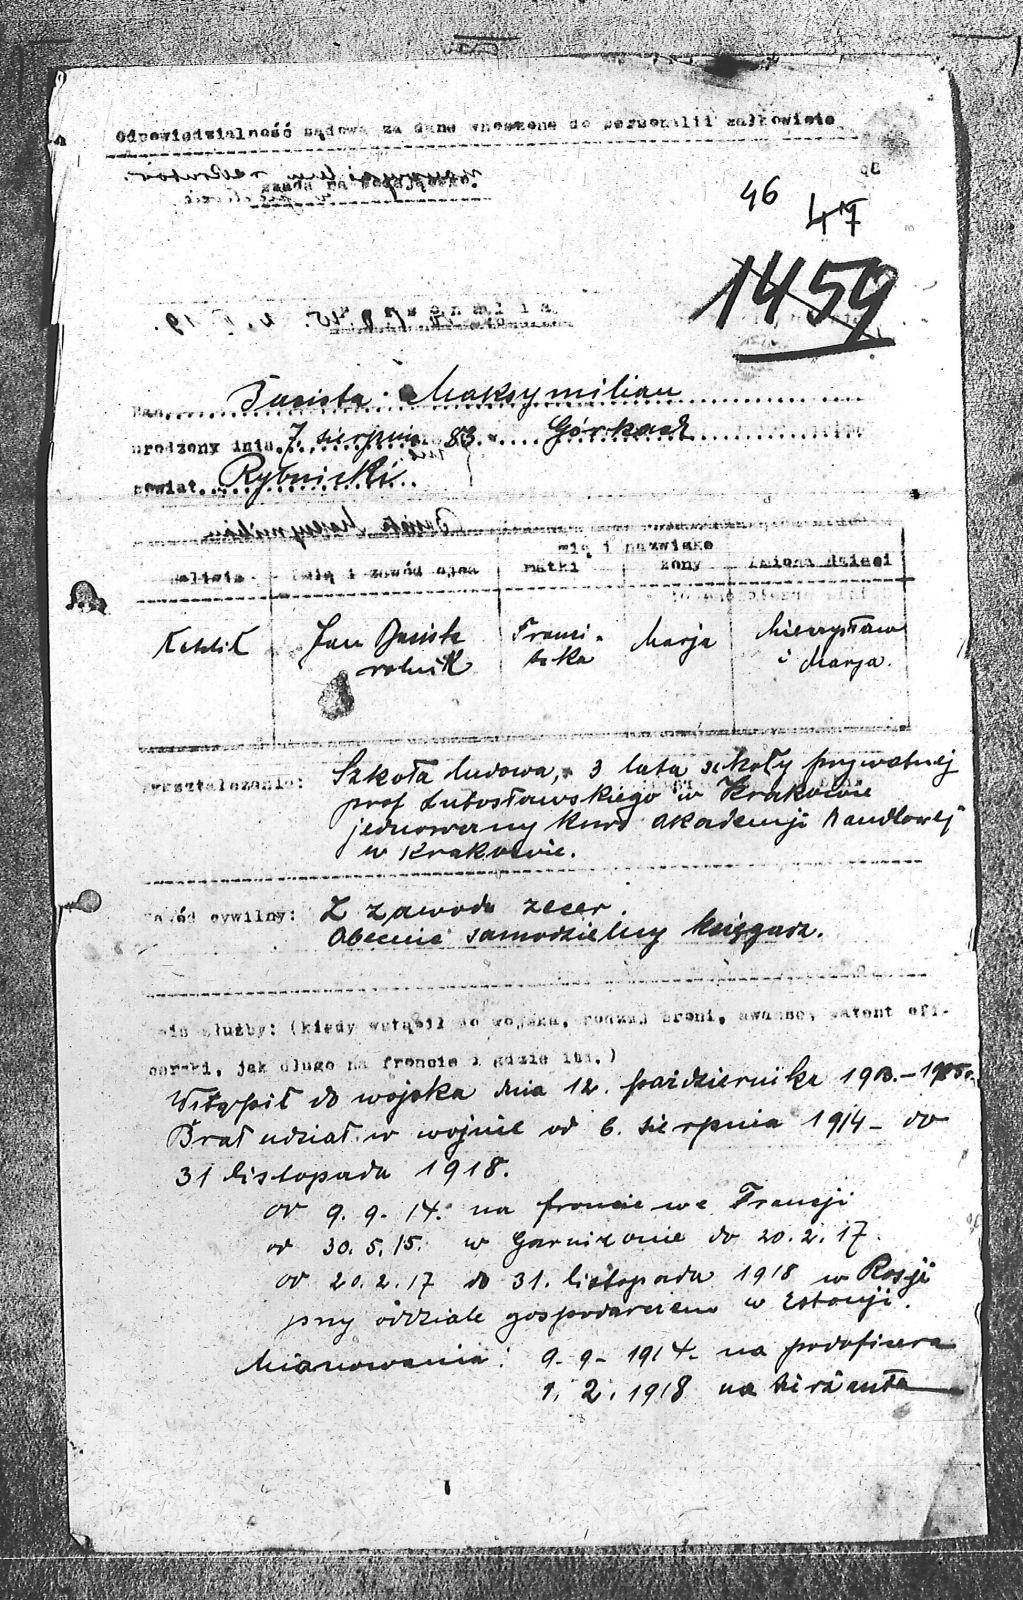 Odpowiedzialność sądowa za dane wnoszone do personalii całkowicie
46
47
1459
Pan Basista Maksymilian
urodzony dnia 7. sierpnia 83 w Górkach
powiat Rybnicki
Religia Imię i zawód ojca Imię i nazwisko matki żony Imiona dzieci
Katolik Jan Basista rolnik Franciszka Marja Mieczysław i Marja
Wykształcenie: Szkoła ludowa, 3 lata szkoły prywatnej
prof Lutosławskiego w Krakowie
jednoroczny kurs akademji handlowej
w Krakowie.
Zawód cywilny: Z zawodu zecer.
Obecnie samodzielny księgarz.
służby: (kiedy wstąpił do wojska, rodzaj broni, awanse, patent ofi-
cerski, jak długo na froncie i gdzie itd.)
Wstąpił do wojska dnia 12. października 1903.-1905.
Brał udział w wojnie od 6. sierpnia 1914 - do
31 listopada 1918.
od 9. 9. 14. na froncie we Francji
od 30. 5. 15. w Garnizonie do 20. 2. 17.
od 20. 2. 17 do 31. listopada 1918 w Rosji
przy oddziale gospodarczem w Estonji.
Mianowania: 9. 9. 1914. na podoficera
1. 2. 1918 na sierżanta